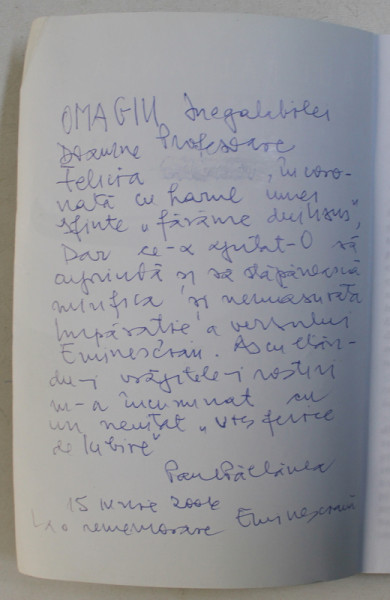 OMAGIU Inegalabilei
Doamne Profesoare
Felicia , încoro-
nată cu harul unei
sfinte „fărâme de Iisus",
Dar ce-a ajutat-O să
cuprindă și să stăpânească
mirifica și nemăsurata
Împărăție a verbului
Eminescian. Ascultân-
du-i vrăjitele-i rostiri
m-a încununat cu
un neuitat „vis ferice
de iubire"
Paul
15 iunie 2006
La o rememorare Eminesciană